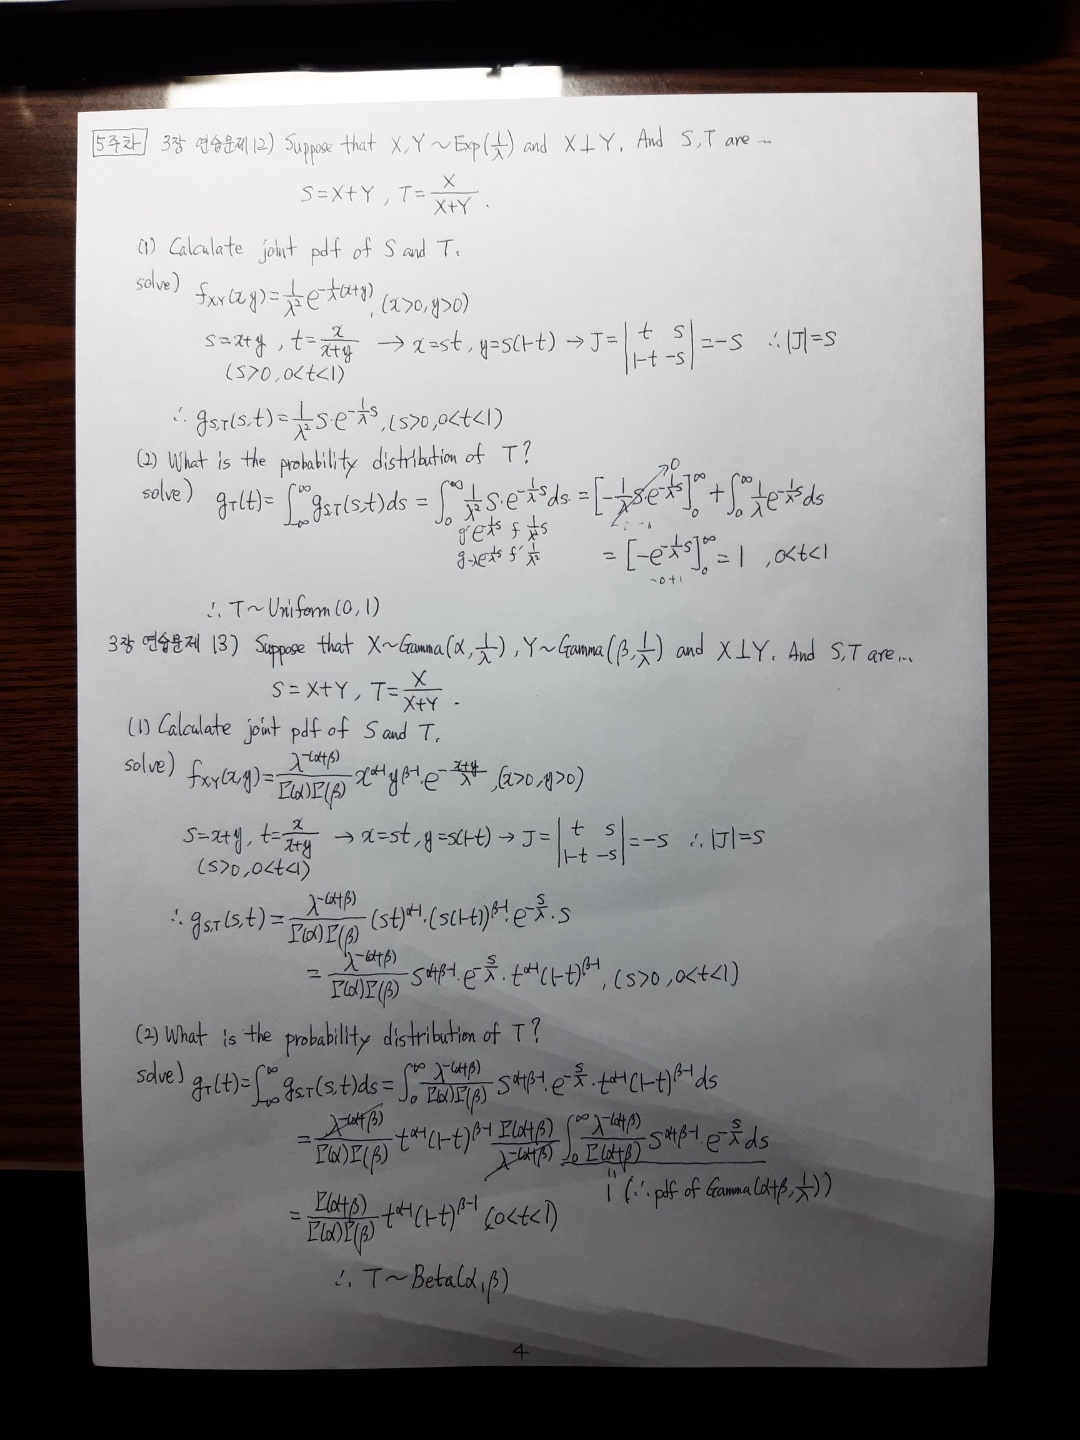 5주차 3장 연습문제 12) Suppose that X, Y ~ Exp(1/λ) and X⊥Y. And S, T are ...
S = X+Y, T = X/(X+Y).
(1) Calculate joint pdf of S and T.
solve) f_XY(x,y) = 1/λ² e^(-1/λ(x+y)), (x>0, y>0)
s=x+y, t=x/(x+y) → x=st, y=s(1-t) → J = |t s; 1-t -s| = -s ∴ |J|=s
(s>0, 0<t<1)
∴ g_S,T(s,t) = 1/λ² s·e^(-1/λ s), (s>0, 0<t<1)
(2) What is the probability distribution of T?
solve) g_T(t) = ∫_-∞^∞ g_S,T(s,t)ds = ∫_0^∞ 1/λ² s·e^(-1/λ s) ds = [-1/λ s·e^(-1/λ s)]_0^∞ → 0 + ∫_0^∞ 1/λ e^(-1/λ s) ds
g' e^(-1/λ s) f 1/λ² s
g -λe^(-1/λ s) f' 1/λ²
= [-e^(-1/λ s)]_0^∞ = 1, 0<t<1
-0+1
∴ T ~ Uniform(0, 1)
3장 연습문제 13) Suppose that X~Gamma(α, 1/λ), Y~Gamma(β, 1/λ) and X⊥Y. And S, T are ...
S = X+Y, T = X/(X+Y).
(1) Calculate joint pdf of S and T.
solve) f_XY(x,y) = λ^-(α+β)/(Γ(α)Γ(β)) x^(α-1) y^(β-1)·e^(-(x+y)/λ), (x>0, y>0)
s=x+y, t=x/(x+y) → x=st, y=s(1-t) → J = |t s; 1-t -s| = -s ∴ |J|=s
(s>0, 0<t<1)
∴ g_S,T(s,t) = λ^-(α+β)/(Γ(α)Γ(β)) (st)^(α-1)·(s(1-t))^(β-1)·e^(-s/λ)·s
= λ^-(α+β)/(Γ(α)Γ(β)) s^(α+β-1)·e^(-s/λ)·t^(α-1)(1-t)^(β-1), (s>0, 0<t<1)
(2) What is the probability distribution of T?
solve) g_T(t) = ∫_-∞^∞ g_S,T(s,t)ds = ∫_0^∞ λ^-(α+β)/(Γ(α)Γ(β)) s^(α+β-1)·e^(-s/λ)·t^(α-1)(1-t)^(β-1) ds
= λ^-(α+β)/(Γ(α)Γ(β)) t^(α-1)(1-t)^(β-1) Γ(α+β)/λ^-(α+β) ∫_0^∞ λ^-(α+β)/Γ(α+β) s^(α+β-1)·e^(-s/λ) ds
1 (∵ pdf of Gamma(α+β, 1/λ))
= Γ(α+β)/(Γ(α)Γ(β)) t^(α-1)(1-t)^(β-1) (0<t<1)
∴ T ~ Beta(α, β)
4